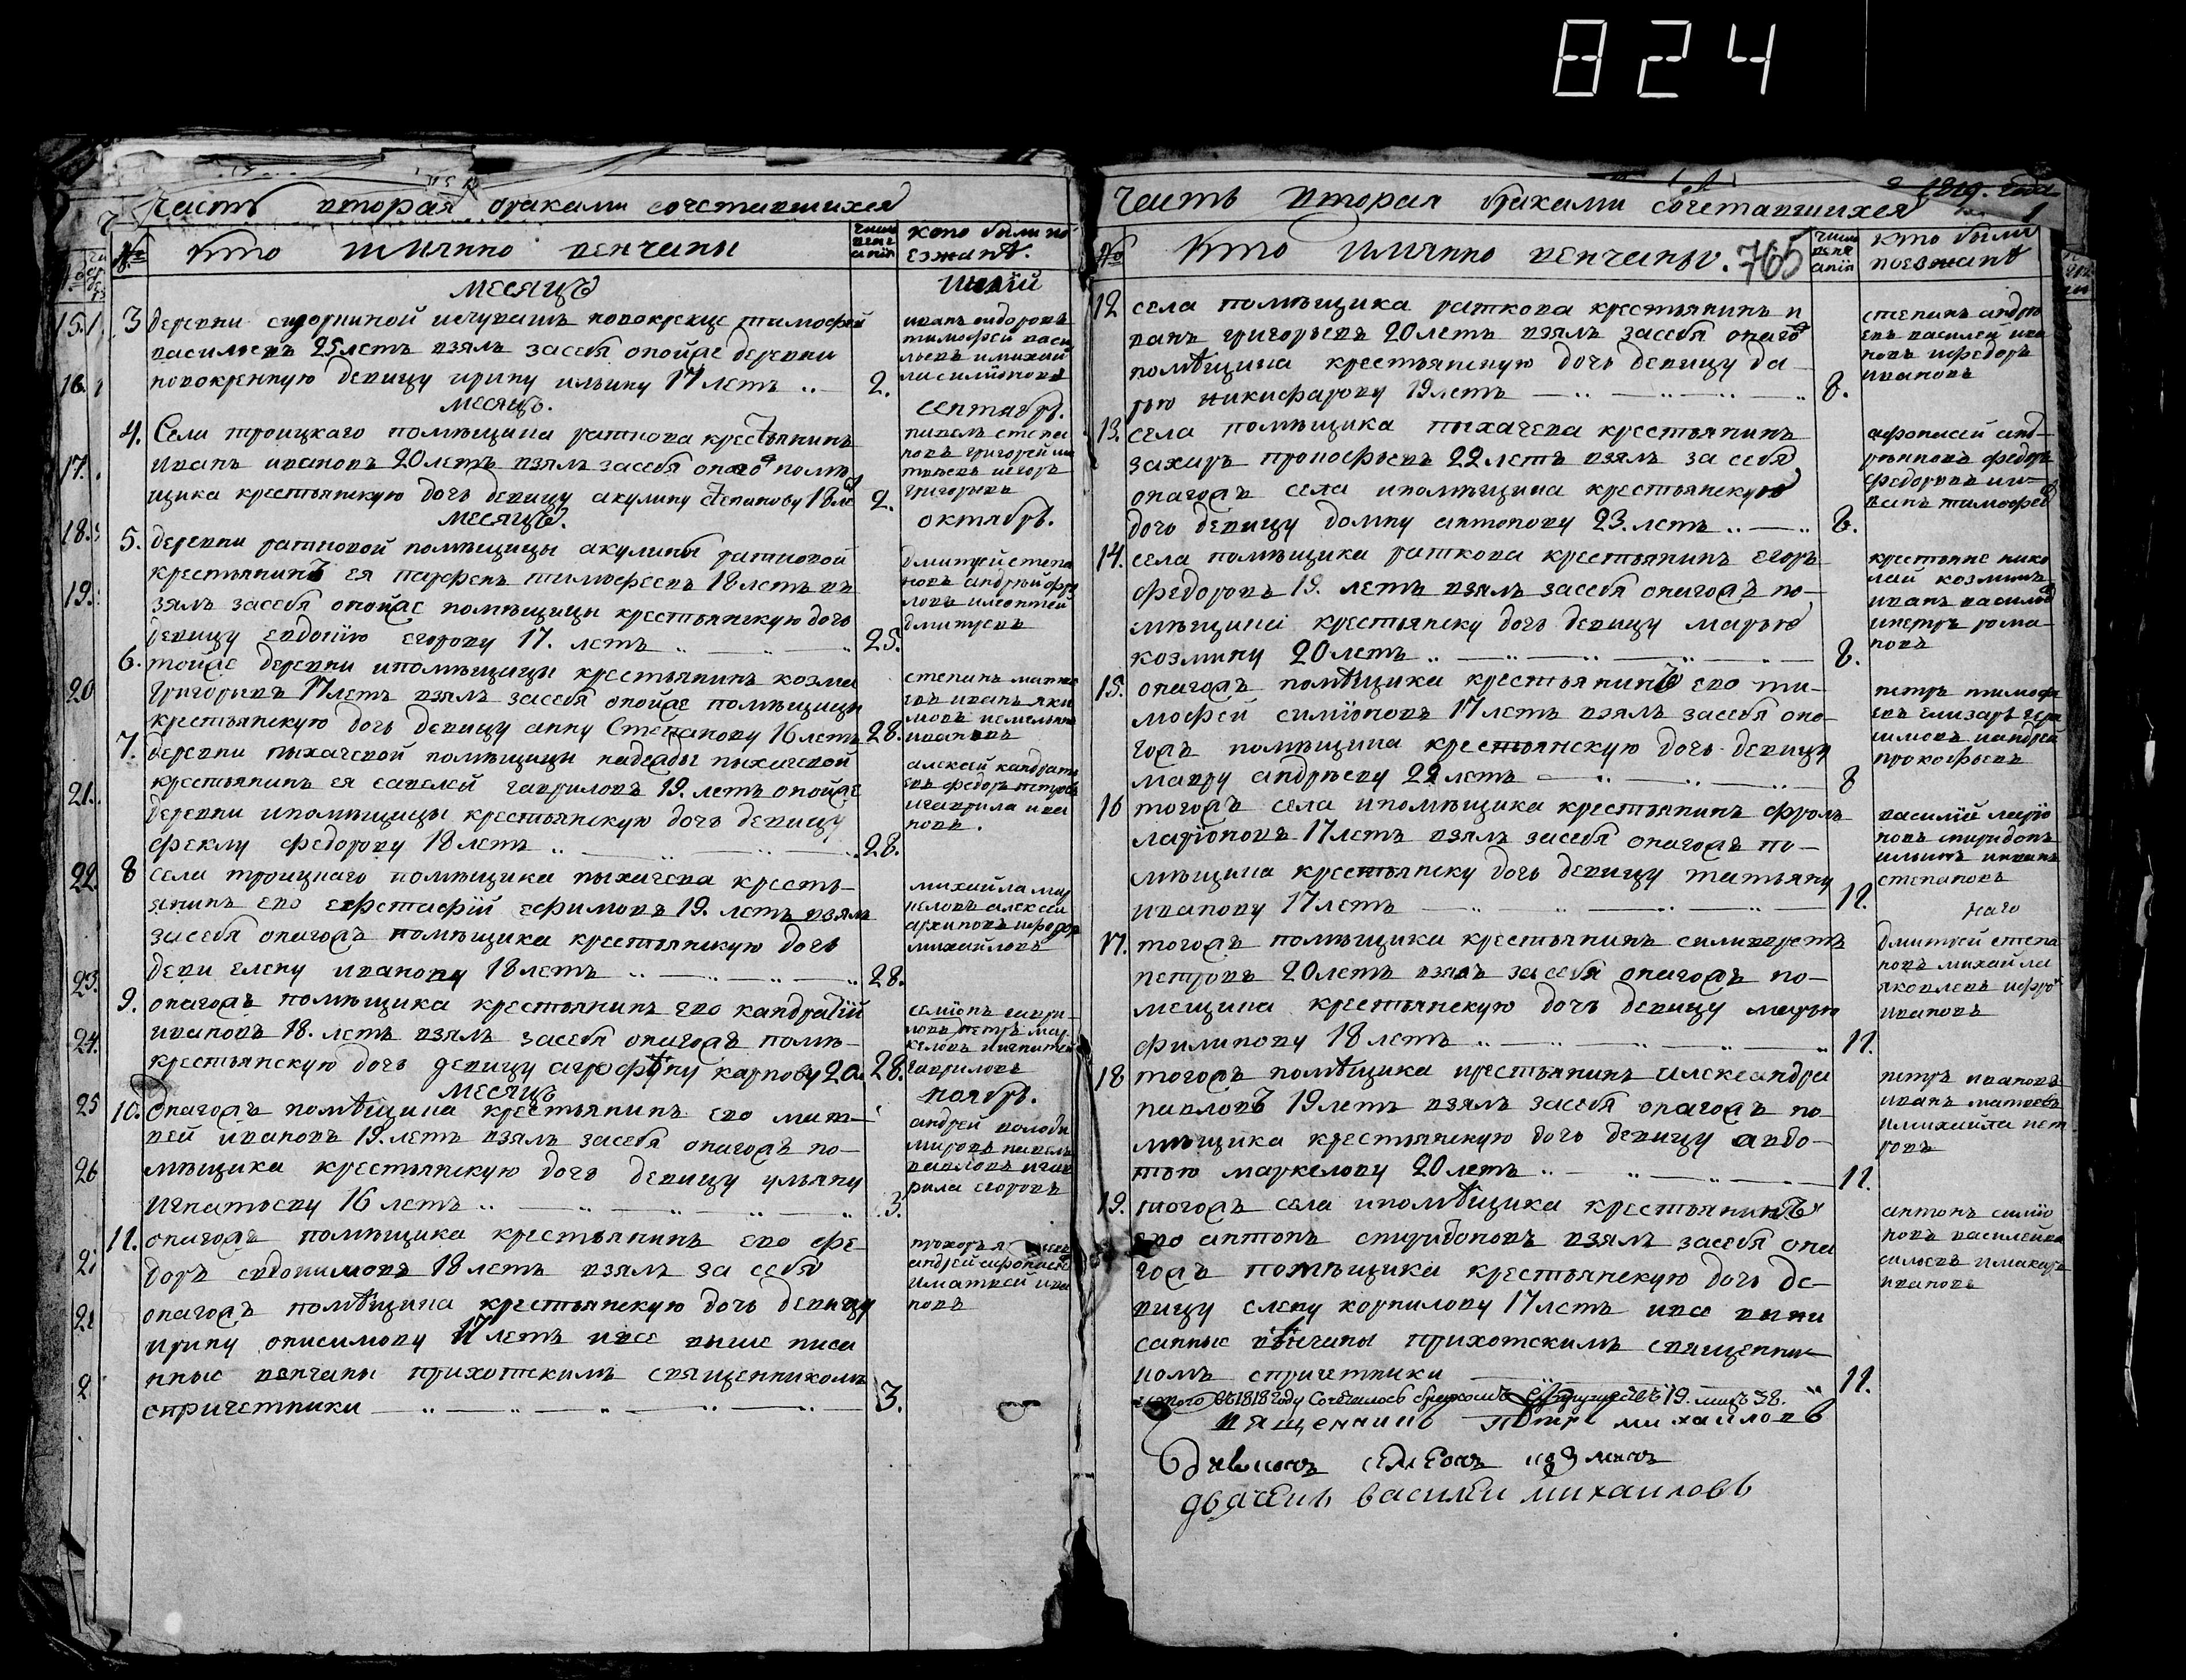 824
Часть вторая браками сочетавшихся
№
кто имянно венчаны
число венчания
кто были поезжанѣ.
месяцъ
июлий
3 деревни сидоркиной исчувашъ новокреще тимофей
васильевъ 25 летъ взялъ засебя онойже деревни
новокренную девицу ирину ильину 17 летъ
2.
иванъ сидоровъ
тимофей васи
льевъ имихай
ла симионовъ
месяцъ.
сентябрь.
4. Села троицкаго помѣщика раткова крестьянинъ
иванъ ивановъ 20 летъ взялъ засебя онаго помѣ
щика крестьянскую дочь девицу акулину степанову 18 ле
2.
павелъ степа
новъ григорей ма
твѣевъ иегоръ
григорьевъ
месяцъ.
октябрь.
5. деревни ратковой помѣщицы акулины ратковой
крестьянинъ ея парфенъ тимофеевъ 18 летъ вь
зялъ засебя онойже помѣщицы крестьянскую дочь
девицу евдокию егорову 17. летъ
25.
дмитрей степа
новъ андрей фро
ловъ илеонтей
дмитревъ
6. тойже деревни ипомѣщицы крестьянинъ козма
григорьевъ 17 летъ взялъ засебя онойже помѣщицы
крестьянскую дочь девицу анну Степанову 16 летъ
28.
степанъ матве
евъ иванъ яки
мовъ иемельянъ
ивановъ
7. деревни пыхачевой помѣщицы надежды пыхачевой
крестьянинъ ея савелей гавриловъ 19. летъ онойже
деревни ипомѣщицы крестьянскую дочь девицу
феклу федорову 18 летъ
28.
алексѣй кандрать
евъ федоръ петровъ
игаврила ива
новъ.
8 села троицкаго помѣщика пыхачева кресть-
янинъ ево евфстафий ефимовъ 19. летъ взялъ
засебя онагожъ помѣщика крестьянскую дочь
деви елену иванову 18 летъ
28.
михайла мар
келовъ алексей
архиповъ ифедор
михайловъ
9. онагожъ помѣщика крестьянинъ ево кандратий
ивановъ 18. летъ взялъ засебя онагожъ помѣ-
крестьянскую дочь девицу агрофѣну карпову 20.
28.
семионъ гаври-
ловъ петръ мар-
келовъ иигнатей
гавриловъ
месяцъ
ноябрь.
10. Онагожъ помѣщика крестьянинъ ево мат-
вей ивановъ 19. летъ взялъ засебя онагожъ по-
мѣщика крестьянскую дочь девицу ульяну
игнатьеву 16 летъ
3.
андрей володи
мировъ павелъ
павловъ игав
рила егоровъ
11. онагожъ помѣщика крестьянинъ ево фе-
доръ евдокимовъ 18 летъ взялъ за себя
онагожъ помѣщика крестьянскую дочь девицу
ирину онисимову 17 летъ ивсе выше писа
нные венчаны прихотскимъ священникомъ
спричетники
3.
прохоръ
андрей афонасе
иматвей ива
новъ
Часть вторая браками сочетавшихся
1819. года
№
Кто имянно венчаны. 765
число венчания
кто были поезжанѣ
12 села помѣщика раткова крестьянинъ и
ванъ григорьевъ 20 летъ взялъ засебя онаго
помѣщика крестьянскую дочь девицу да-
рью никифарову 19 летъ
8.
степанъ андре
евъ василей ива
новъ ифедоръ
ивановъ
13. села помѣщика пыхачева крестьянинъ
захаръ прокофьевъ 22 летъ взялъ за себя
онагожъ села ипомѣщика крестьянскую
дочь девицу домну антонову 23. летъ
8.
афонасей анд-
реяновъ федоръ
федоровъ ии-
ванъ тимофее
14. села помѣщика раткова крестьянинъ егоръ
федоровъ 19. летъ взялъ засебя онагожъ по-
мѣщика крестьянску дочь девицу марью
козмину 20 летъ
8.
крестьяне нико
лай козминъ
иванъ василье
ипетръ рома-
новъ
15. онагожъ помѣщика крестьянинъ ево ти-
мофей симионовъ 17 летъ взялъ засебя оно-
гожъ помѣщика крестьянскую дочь девицу
мавру андрѣеву 22 летъ
8
петръ тимофе
евъ елизаръ гера
симовъ иандрей
прокофьевъ
16 тогожъ села ипомѣщика крестьянинъ фролъ
ларионовъ 17 летъ взялъ засебя онагожъ по-
мѣщика крестьянску дочь девицу татьяну
иванову 17 летъ
11.
василий ларио
новъ спиридонъ
ильинъ иванъ
степановъ
17. тогожъ помѣщика крестьянинъ силиверстъ
петровъ 20 летъ взялъ засебя онагожъ по-
мещика крестьянскую дочь девицу марью
филипову 18 летъ
11.
дмитрей степа
новъ михайла
яковлевъ ифро
ивановъ
18 тогожъ помѣщика крестьянинъ александра
павловъ 19 летъ взялъ засебя онагожъ по
мѣщика крестьянскую дочь девицу авдо-
тью маркелову 20 летъ
11.
петръ ивановъ
иванъ матвеевъ
имихайла пет
ровъ
19. тогожъ села ипомѣщика крестьянинъ
ево антонъ спиридоновъ взялъ засебя она
гожъ помѣщика крестьянскую дочь де-
вицу елену корнилову 17 летъ ивсе выпи
санные вѣнчаны прихотскимъ священни-
комъ спричетники
11.
антонъ симио
новъ василейва
сильевъ имакаръ
ивановъ
итого въ 1818 году Сочеталось бракомъ 19. лицъ 38.
священникъ Петръ михаиловъ
Дьячокъ василеи михаиловъ
15.
16.
17.
18.
19.
20
21.
22.
23.
24.
25
26